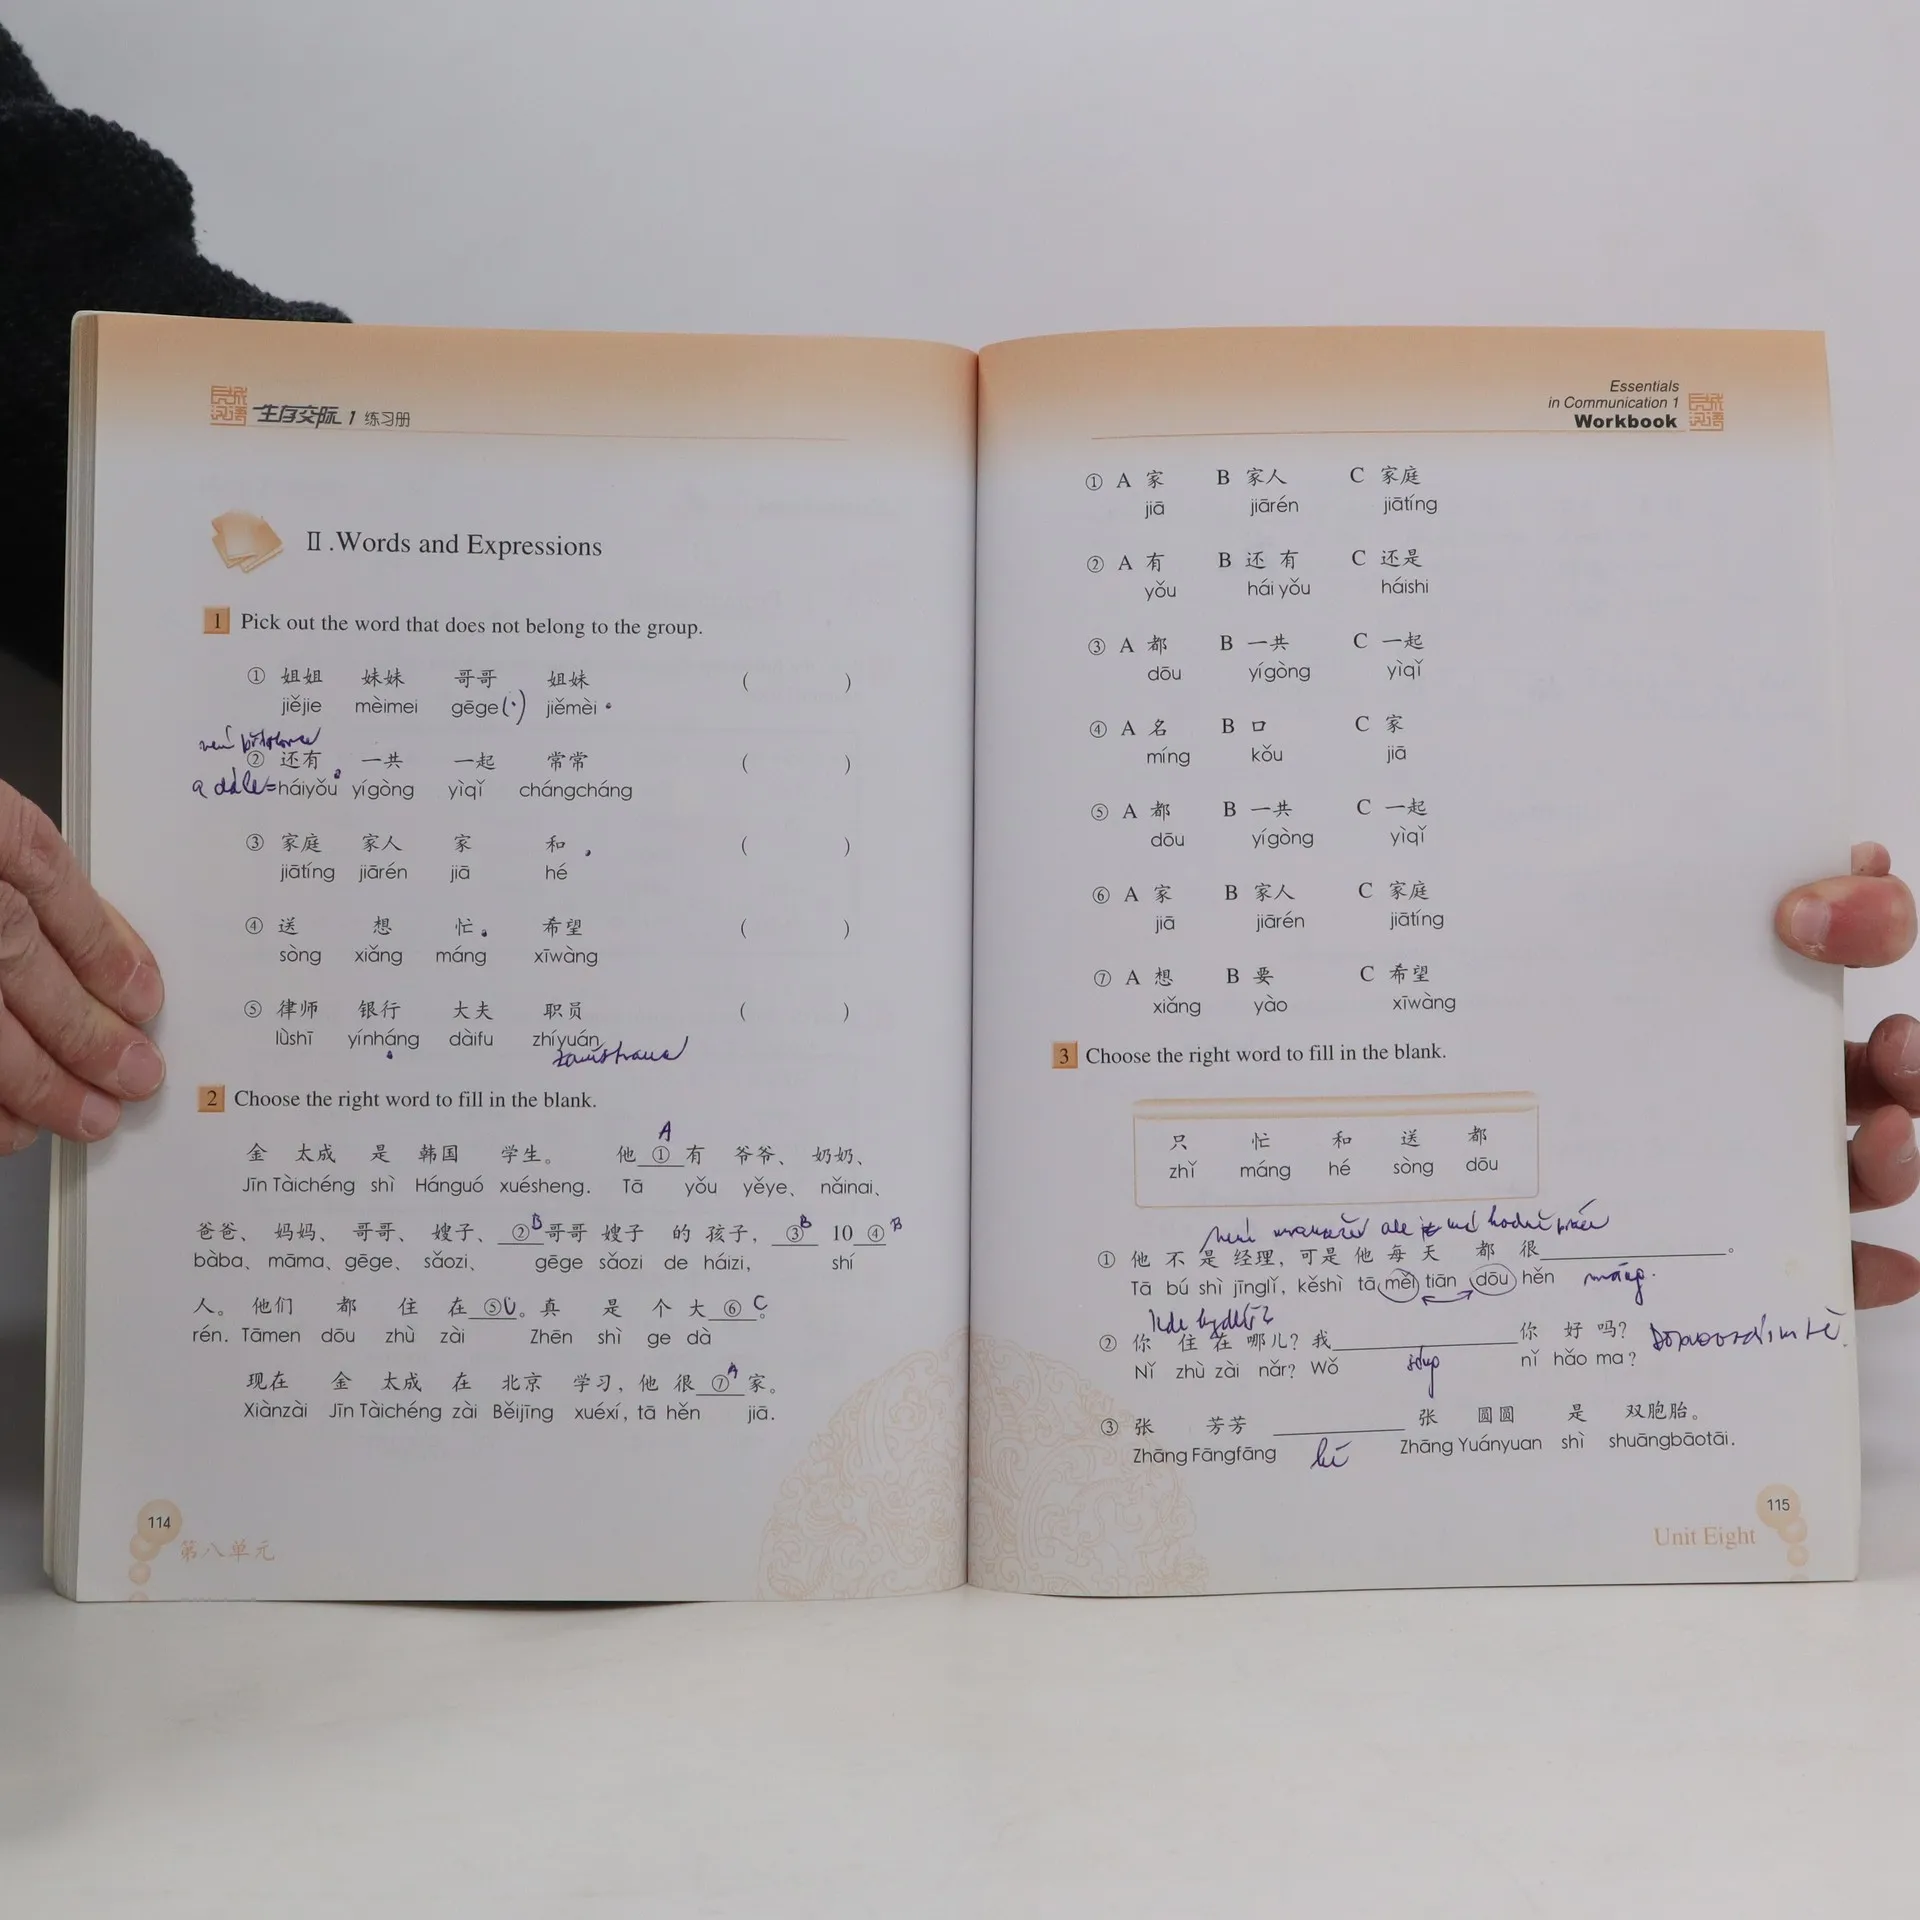 长城汉语 生存交际 1 练习册
Ⅱ.Words and Expressions
1 Pick out the word that does not belong to the group.
① 姐姐 妹妹 哥哥 姐妹 ( )
jiějie mèimei gēge (·) jiěmèi
není
② 还有 一共 一起 常常 ( )
a dále = háiyǒu yígòng yìqǐ chángcháng
③ 家庭 家人 家 和 ( )
jiātíng jiārén jiā hé
④ 送 想 忙 希望 ( )
sòng xiǎng máng xīwàng
⑤ 律师 银行 大夫 职员 ( )
lǜshī yínháng dàifu zhíyuán
2 Choose the right word to fill in the blank.
A
金 太成 是 韩国 学生。 他 ① 有 爷爷、 奶奶、
Jīn Tàichéng shì Hánguó xuésheng. Tā yǒu yéye、 nǎinai、
爸爸、 妈妈、 哥哥、 嫂子、 ② B 哥哥 嫂子 的 孩子, ③ B 10 ④ B
bàba、 māma、 gēge、 sǎozi、 gēge sǎozi de háizi, shí
人。 他们 都 住 在 ⑤ 。 真 是 个 大 ⑥ C 。
rén. Tāmen dōu zhù zài Zhēn shì ge dà
现在 金 太成 在 北京 学习, 他 很 ⑦ A 家。
Xiànzài Jīn Tàichéng zài Běijīng xuéxí, tā hěn jiā.
114
第八单元
Essentials
in Communication 1
Workbook 长城汉语
① A 家 B 家人 C 家庭
jiā jiārén jiātíng
② A 有 B 还 有 C 还是
yǒu hái yǒu háishi
③ A 都 B 一共 C 一起
dōu yígòng yìqǐ
④ A 名 B 口 C 家
míng kǒu jiā
⑤ A 都 B 一共 C 一起
dōu yígòng yìqǐ
⑥ A 家 B 家人 C 家庭
jiā jiārén jiātíng
⑦ A 想 B 要 C 希望
xiǎng yào xīwàng
3 Choose the right word to fill in the blank.
只 忙 和 送 都
zhǐ máng hé sòng dōu
není ale má hodně práce
① 他 不 是 经理, 可是 他 每 天 都 很 。
Tā bú shì jīnglǐ, kěshì tā měi tiān dōu hěn máng.
kde bydlíš?
② 你 住 在 哪儿? 我 你 好 吗?
Nǐ zhù zài nǎr? Wǒ sòng nǐ hǎo ma?
③ 张 芳芳 张 圆圆 是 双胞胎。
Zhāng Fāngfāng hé Zhāng Yuányuan shì shuāngbāotāi.
115
Unit Eight